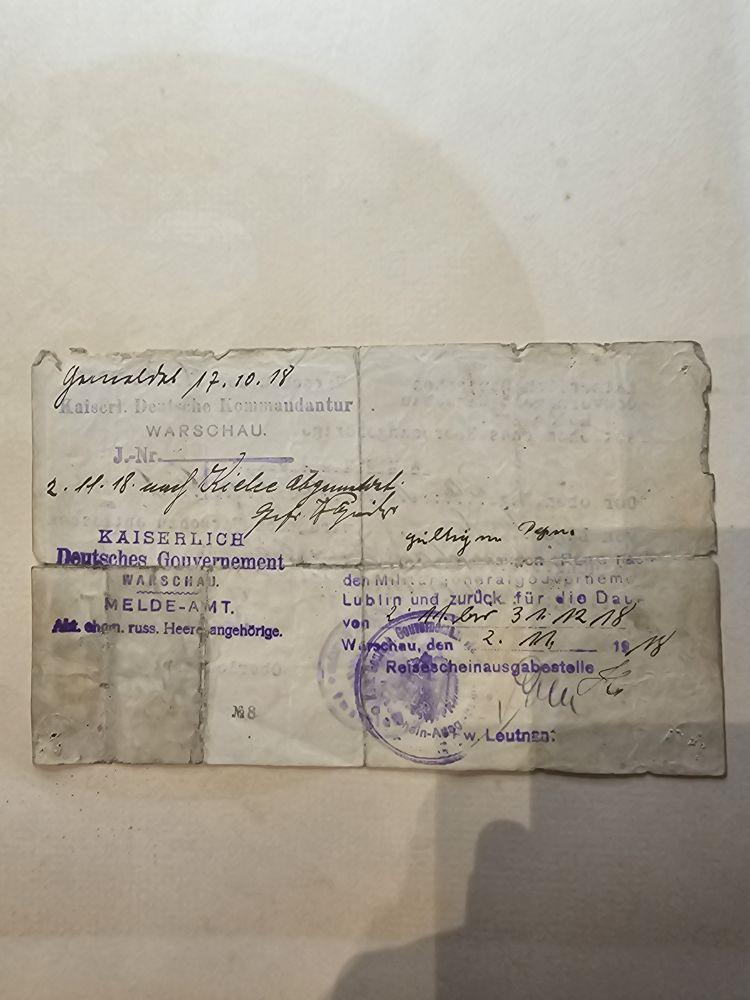 Gemeldet 17.10.18
Kaiserl. Deutsche Kommandantur
WARSCHAU.
J.-Nr.
2. 11. 18. nach Kielce abgemeldet.
Gefr.
KAISERLICH
Deutsches Gouvernement
WARSCHAU.
MELDE-AMT.
Abt. ehem. russ. Heeresangehörige.
№ 8
gültig
den Militärgeneralgouverneme
Lublin und zurück für die Dau
von 2. 11. bis 31. 12. 18
Warschau, den 2. 11. 1918
Reisescheinausgabestelle
Leutnant